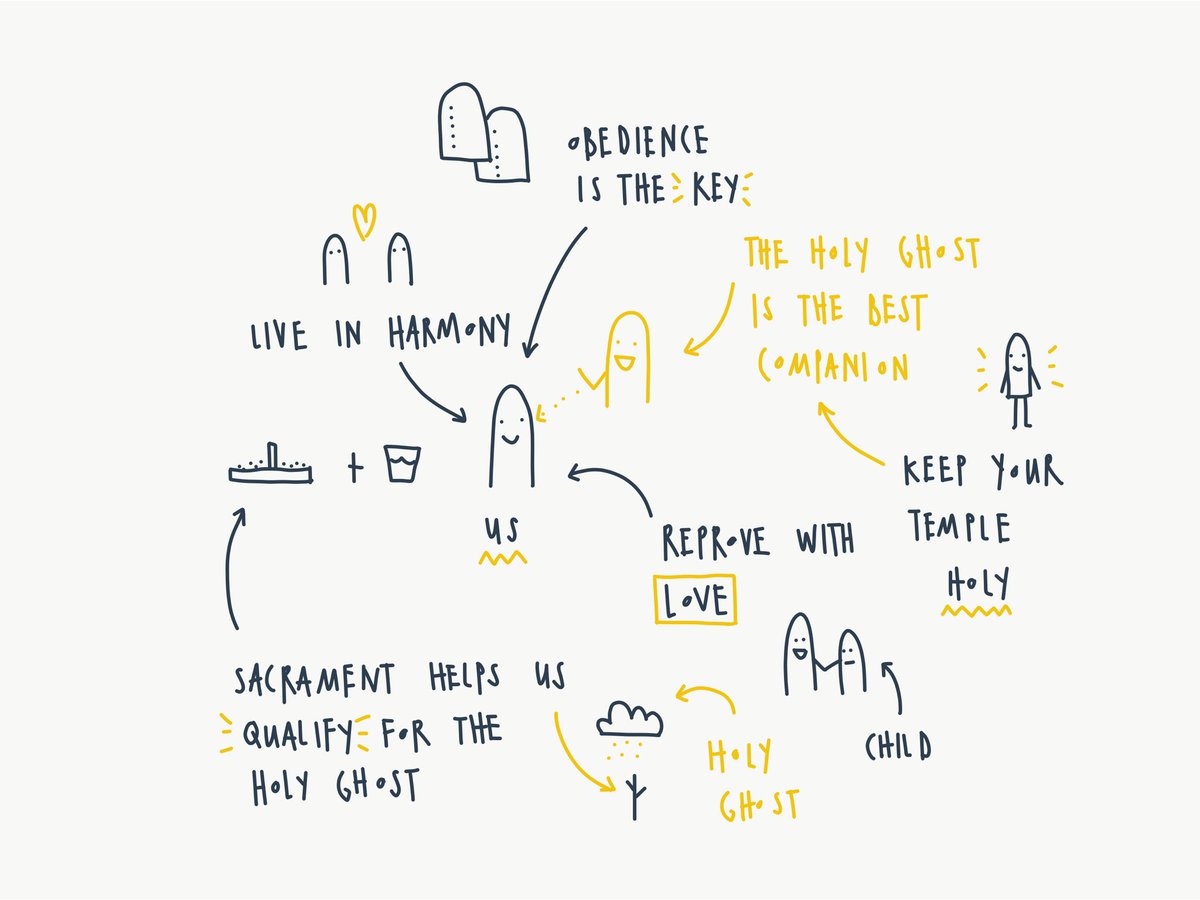 OBEDIENCE
IS THE KEY
THE HOLY GHOST
IS THE BEST
COMPANION
LIVE IN HARMONY
KEEP YOUR
TEMPLE
HOLY
+
US
REPROVE WITH
LOVE
SACRAMENT HELPS US
QUALIFY FOR THE
HOLY GHOST
HOLY
GHOST
CHILD